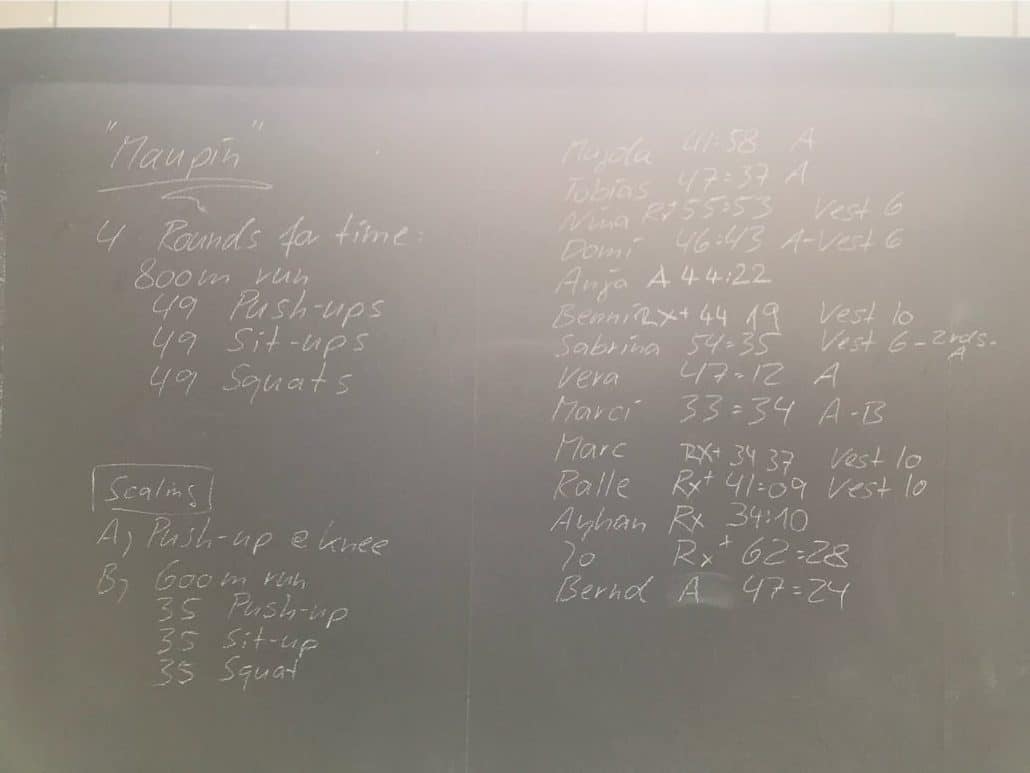 "Maupin"
4 Rounds for time:
800m run
49 Push-ups
49 Sit-ups
49 Squats
Scaling
A) Push-up @ knee
B) 600m run
35 Push-up
35 Sit-up
35 Squat
Majda 41:58 A
Tobias 47:37 A
Nina Rx+ 55:53 Vest 6
Domi 46:43 A-Vest 6
Anja A 44:22
Benni Rx+ 44 19 Vest 10
Sabrina 54:35 Vest 6-2rds-A
Vera 47:12 A
Marci 33:34 A-B
Marc RX+ 34 37 Vest 10
Ralle Rx+ 41:09 Vest 10
Ayhan Rx 34:10
Jo Rx+ 62:28
Bernd A 47:24